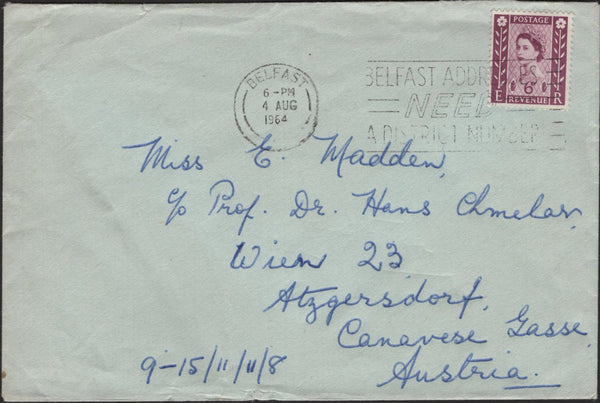 BELFAST
6-PM
4 AUG
1964
BELFAST ADDR
NEED
A DISTRICT NUMBER
POSTAGE
6D
E R
REVENUE
Miss E. Madden,
c/o Prof. Dr. Hans Chmelar,
Wien 23
Atzgersdorf,
Canavese Gasse,
9-15/11/11/8
Austria.